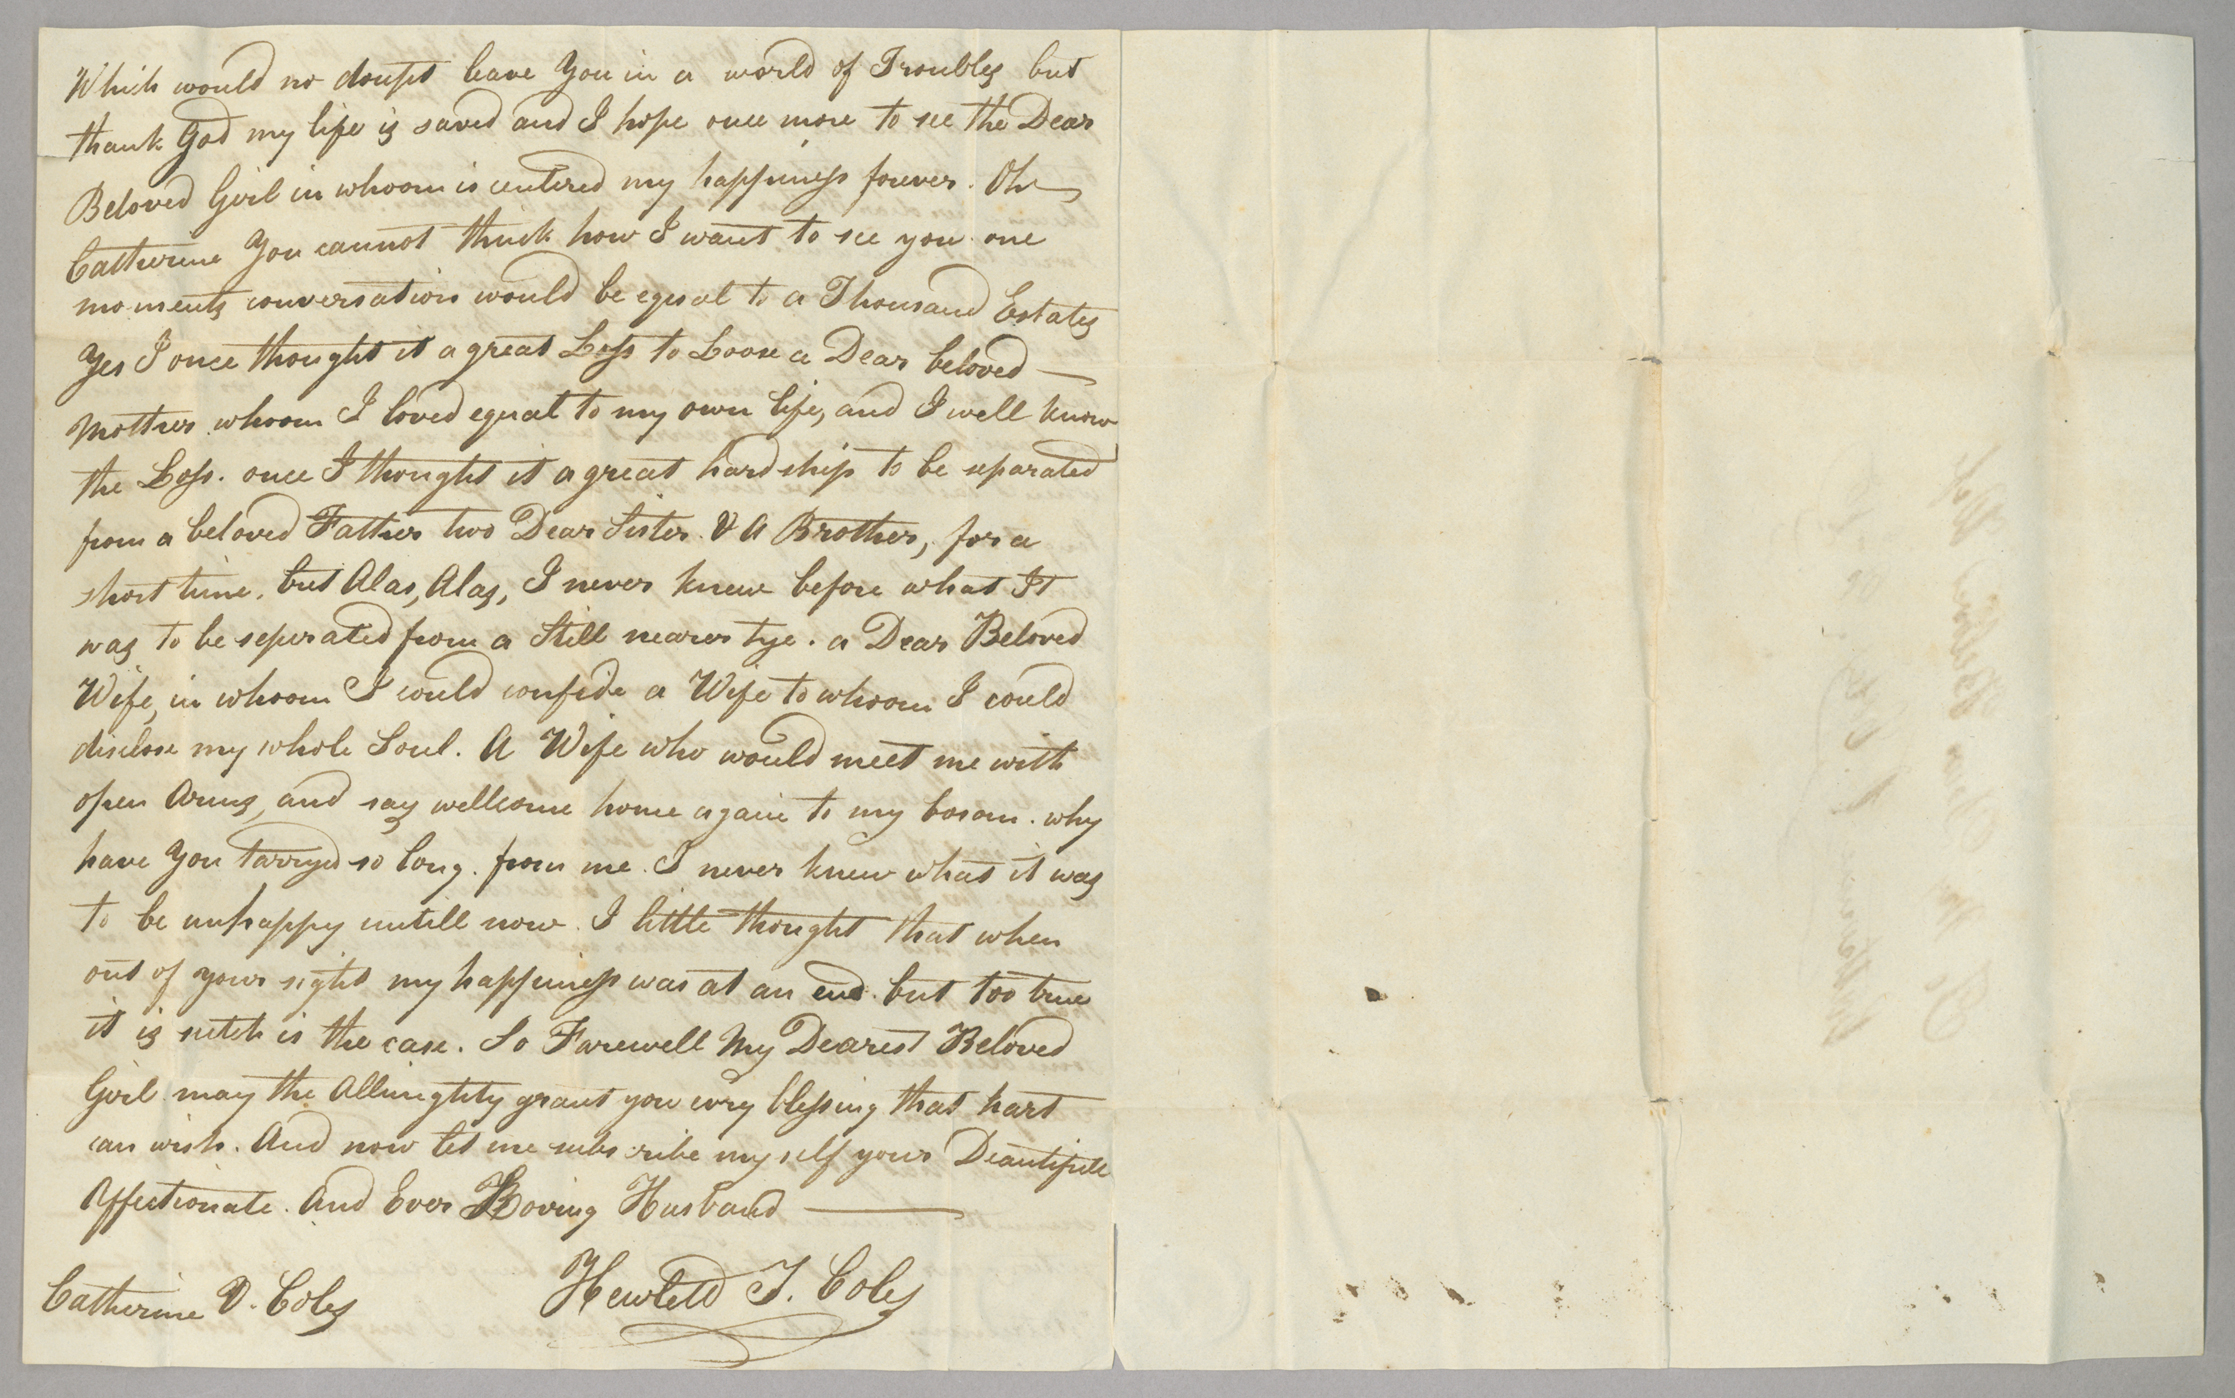 Which would no doupt leave You in a world of Troubles but
thank God my life is saved and I hope once more to see the Dear
Beloved Girl in whoom is centered my happiness forever. Oh
Catherine You cannot think how I want to see you one
moments conversation would be equal to a Thousand Estates
Yes I once thought it a great Loss to Loose a Dear beloved —
Mother whoom I loved equal to my own life, and I well know
the Loss. once I thought it a great hardship to be separated
from a beloved Father two Dear Sister. & A Brother, for a
short time. but Alas, Alas, I never knew before what It
was to be seperated from a Still nearer tye. a Dear Beloved
Wife, in whoom I could confide a Wife to whoom I could
disclose my whole Soul. A Wife who would meet me with
open Arms, and say wellcome home again to my bosom. why
have You tarryed so long. from me. I never knew what it was
to be unhappy untill now. I little thought that when
out of your sight my happiness was at an end. but too true
it is sutch is the case. So Farewell My Dearest Beloved
Girl may the Allmighty grant you evry blessing that hart
can wish. And now let me subscribe myself your Deautifull
Affectionate. And Ever Loving Husband —
Catherine V. Coles Hewlett T. Coles